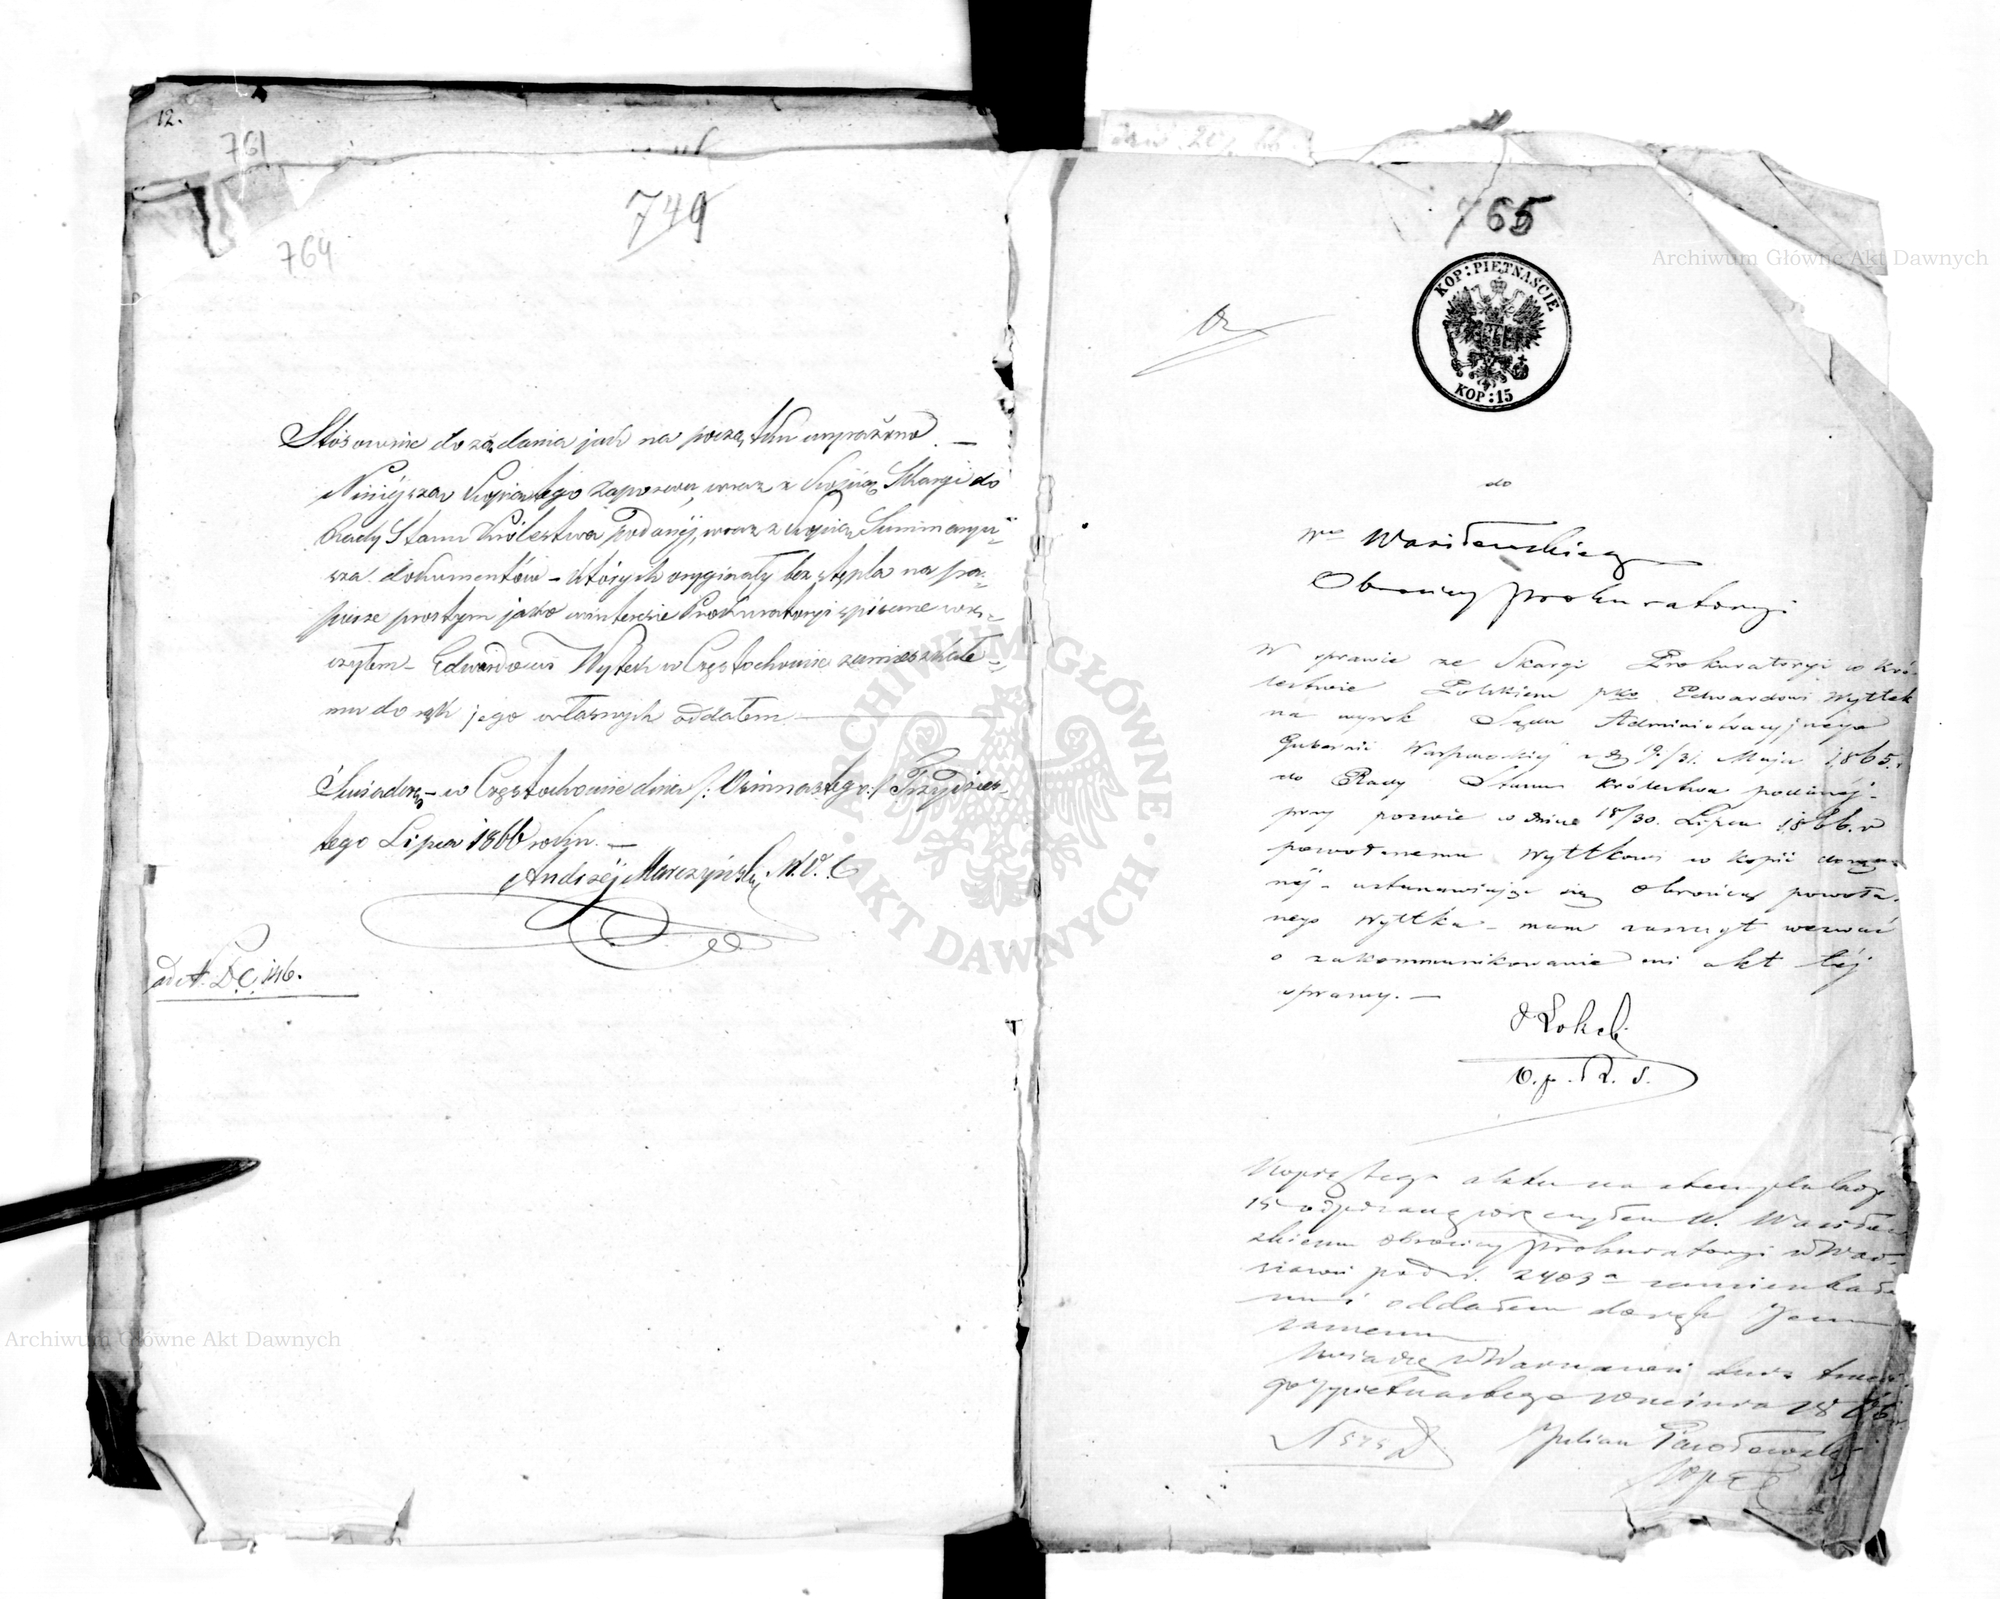 12.
761
764
749
Stósownie do żądania jak na początku wyrażono. —
Niniéjszą Kopią tego zapozwu, wraz z Kopiją Skargi do
Rady Stanu Królestwa podanéj, wraz z Kopią Summaryu-
sza dokumentów – których oryginały bez stępla na pa-
pierze prostym jako w interesie Prokuratoryi spisane wrę-
czyłem – Edwardowi Wyttek w Częstochowie zamieszkałe-
mu do rąk jego własnych oddałem. —
Świadczę – w Częstochowie dnia /: Osimnastego :/ Trzydzies-
tego Lipca 1866 roku. —
Andrzéj Marczyński
ad N. D.C. 146.
765
KOP: PIĘTNAŚCIE
KOP: 15
do
Wgo Wasilewskiego
Obrońcy Prokuratoryi
W sprawie ze Skargi Prokuratoryi w Kró-
lestwie Polskiem pko Edwardowi Wyttek
na wyrok Sądu Administracyjnego
Gubernii Warszawskiéj z d. 19/31. Maja 1865. r
do Rady Stanu Królestwa podanéj –
przy pozwie w dniu 18/30. Lipca 1866. r
powołanemu Wyttkowi w kopii doręczo-
néj – ustanawiając się obrońcą powoła-
nego Wyttka – mam zaszczyt wezwać
o zakommunikowanie mi akt téj
sprawy. —
O. p. R. S.
Kopię tego aktu na stemplu kop
15 wręczyłem W. Wasilew-
skiemu obrońcy Prokuratoryi w War-
szawie pod N. 2403a zamieszkałe-
mu i oddałem do rąk Jemu
samemu
Świadczę w Warszawie dnia trzeci
go/piętnastego 1866 r.
N 545
Julian Pawłowski
Archiwum Główne Akt Dawnych
Archiwum Główne Akt Dawnych
ARCHIWUM GŁÓWNE
AKT DAWNYCH